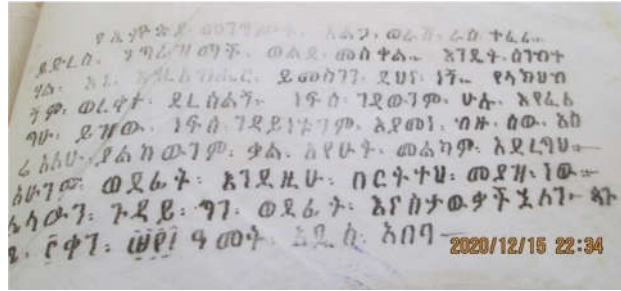 የኢትዮጵያ መንግሥት፡ አልጋ፡ ወራሽ፡ ራስ ተፈሪ
ይድረስ፡ ደጃዝማች፡ ወልደ፡ መስቀል፡ እንዴት፡ ሰንብተ
ሃል፡ እኔ፡ እግዚአብሔር፡ ይመስገን፡ ደህና፡ ነኝ፡ የላክህብ
ኝም፡ ወረቀት፡ ደረሰልኝ፡ ነፍሰ፡ ገዳውንም፡ ሁሉ፡ እየፈለ
ግህ፡ ይዝው፡ ነፍሰ፡ ገዳይነቱንም፡ እያመነ፡ ብዙ፡ ሰው፡ አስ
ሬ አለሁ፡ ያልከውንም፡ ቃል፡ አየሁት፡ መልካም፡ አደረግህ።
አሁንም፡ ወደፊት፡ እንደዚሁ፡ በርትተህ፡ መያዝ፡ ነው።
ሌላውን፡ ጉዳይ፡ ግን፡ ወደፊት፡ እናስታውቃችኋለን። ጳጉ
ሜ፡ ቀን፡ ዓመት፡ አዲስ፡ አበባ።
2020/12/15 22:34